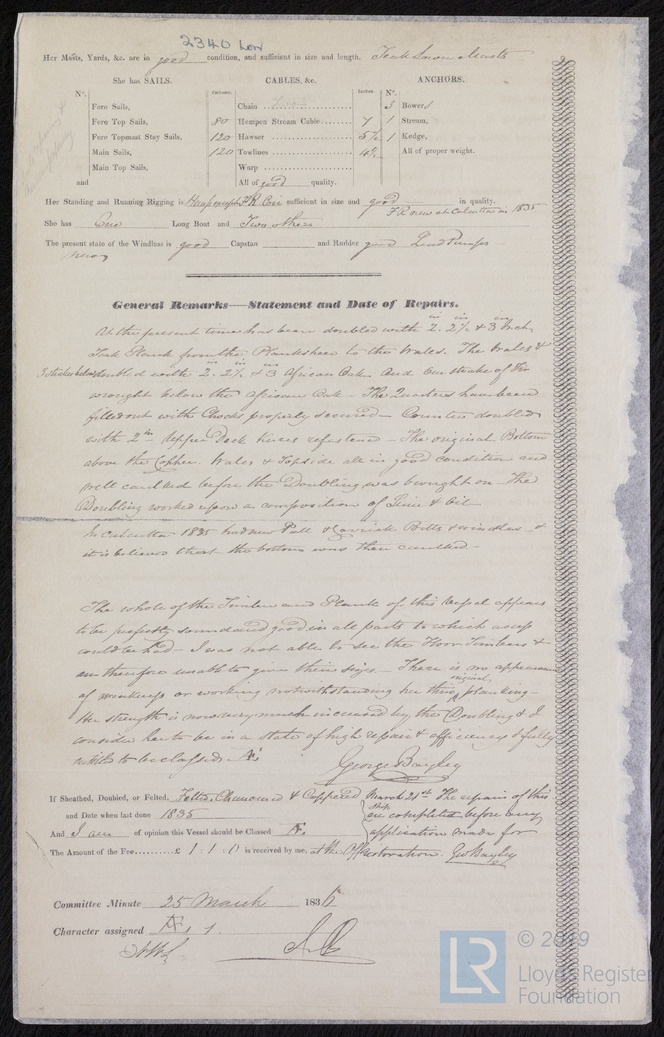 2340 Lon
Her Masts, Yards, &c. are in good condition, and sufficient in size and length. Teak Lower Masts
She has SAILS. CABLES, &c. ANCHORS.
N°. Fathoms. Inches. N°.
Fore Sails, Chain 3 Bowers
Fore Top Sails, 80 Hempen Stream Cable 7 1 Stream,
Fore Topmast Stay Sails, 120 Hawser 5½ 1 Kedge,
Main Sails, 120 Towlines 4½ All of proper weight.
Main Top Sails, Warp
and All of good quality.
Her Standing and Running Rigging is Hemp except F R Coir sufficient in size and good in quality.
F R new at Calcutta in 1835
She has One Long Boat and Two others
The present state of the Windlass is good Capstan and Rudder good Lead Pumps
New
General Remarks—Statement and Date of Repairs.
At the present time has been doubled with 2. 2½ & 3 Inch
Teak Plank from the Planksheer to the Wales. The Wales &
3 strakes below doubled with 2. 2½ & 3 African Oak and One strake of Fir
wrought below the African Oak – The Quarters have been
filled out with Chocks properly secured – Counter doubled
with 2 in Upper Deck Knees refastened – The original Bottom
above the Copper. Wales & Topside all in good condition and
well caulked before the Doubling was brought on – The
Doubling worked upon a composition of Lime & Oil
In Calcutta 1835 had new Pall & Carrick Bitts & windlass &
it is believed that the bottom was then caulked –
The whole of the Timber and Plank of this Vessel appears
to be perfectly sound and good in all parts to which access
could be had – I was not able to see the Floor Timbers &
am therefore unable to give their sizes – There is no appearance
of weakness or working notwithstanding her thin original planking –
Her strength is now very much increased by the Doubling & I
consider her to be in a state of high repair & efficiency & fully
entitled to be classed A1
George Bayley
If Sheathed, Doubled, or Felted, Felted, Chunamed & Coppered March 21st The repairs of this
and Date when last done 1835 ship are completed before any
And I am of opinion this Vessel should be Classed Æ1 application made for
The Amount of the Fee £ 1 : 1 : 0 is received by me, at the Restoration. Geo Bayley
Committee Minute 25 March 1836
Character assigned Æ 1
© 2019
LR
Lloyd's Register
Foundation